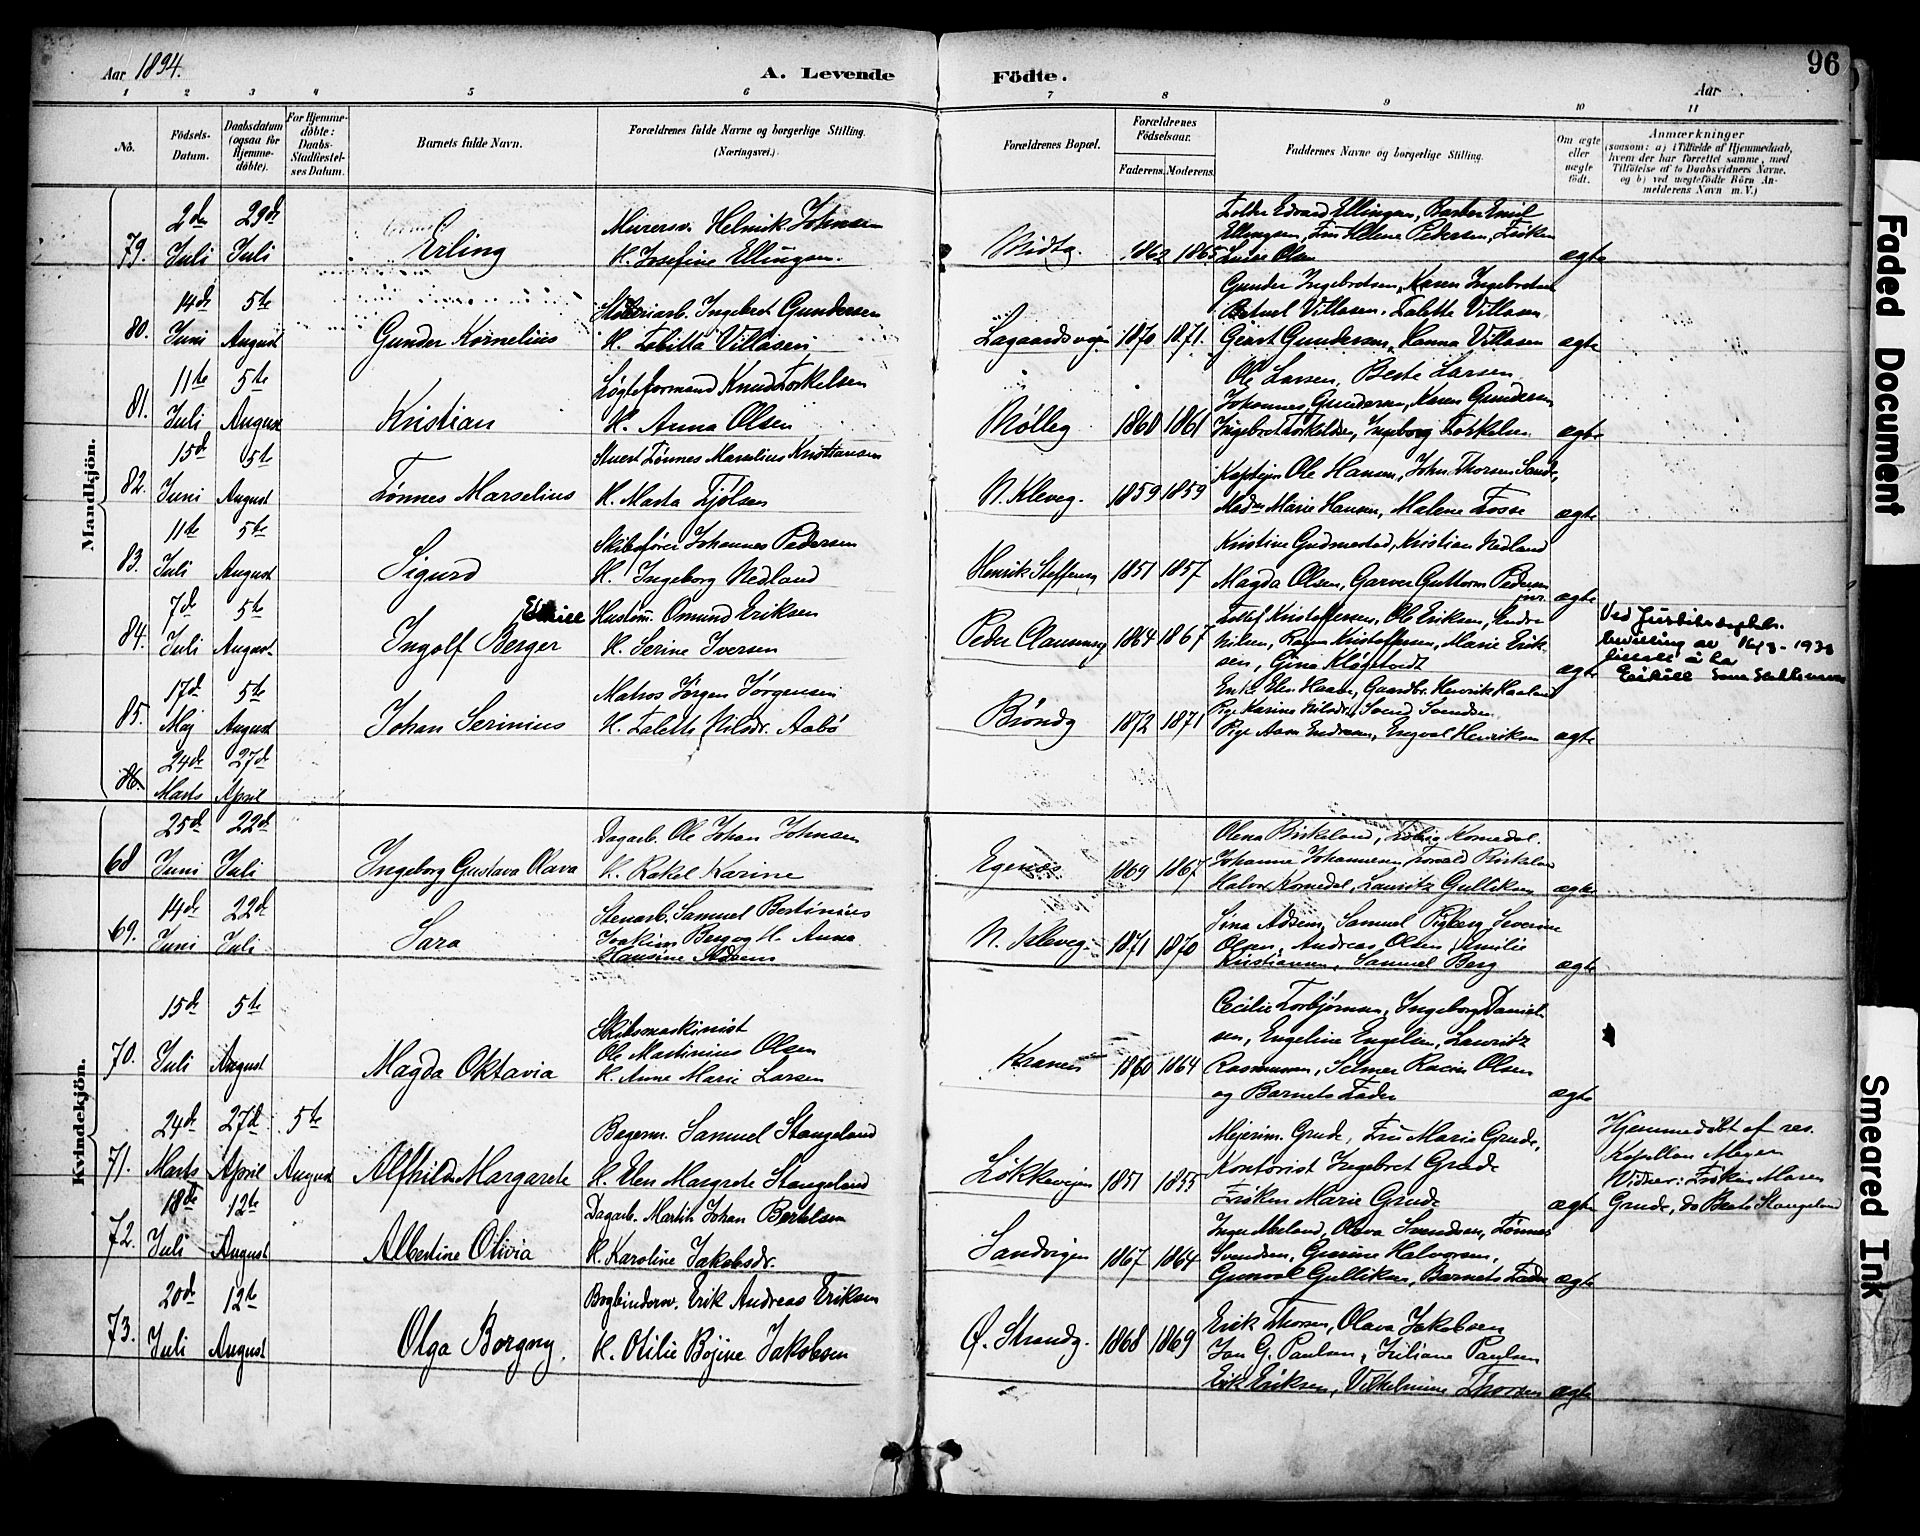 Aar 1894.
A. Levende
Födte.
Aar
96
1 2 3 4 5 6 7 8 9 10 11
No.
Födsels-Datum.
Daabsdatum (ogsaa for Hjemme-döbte).
For Hjemme-döbte: Daabs-Stadfæstel-ses Datum.
Barnets fulde Navn.
Forældrenes fulde Navne og borgerlige Stilling. (Næringsvei.)
Forældrenes Bopæl.
Forældrenes Födselsaar.
Faderens. Moderens.
Faddernes Navne og borgerlige Stilling.
Om ægte eller uægte födt.
Anmærkninger
(saasom: a) i Tilfælde af Hjemmedaab, hvem der har forrettet samme, med Tilföielse af to Daabsvidners Navne, og b) ved uægtefödte Börn Anmelderens Navn m. V.)
Mandkjön.
79. 2de Juli 29de Juli Erling
Murersv. Helmik Johnsen
H. Josefine Ellingsen.
Midtg. 1862 1865
Edvard Ellingsen, Barber Emil
Ellingsen, Fru Helene Pedersen, Frøken
Olsen ægte
80. 14de Juni 5te August Gunder Kornelius
Ingebret Gundersen
H. Tobitta Villasen
Lagaardsvejen 1870 1871.
Gunder Ingebretsen, Karen Ingebretsen
Villasen, Talette Villasen
Geart Gundersen, Hanna Villasen ægte
81. 11te Juli 5te August Kristian
Løgteformand Knud Torkelsen
H. Anna Olsen
Mølleg 1860 1861
Ole Larsen, Berte Larsen
Johannes Gundersen, Karen Gundersen
Ingebret Torkildsen, Ingeborg Torkelsen ægte
82. 15de Juni 5te August Tønnes Marselius
Stuert Tønnes Marselius Kristiansen
H. Marta Fjølsen
N. Kleveg. 1859 1859
Kaptejn Ole Hansen, John Thorsen Sande,
Marie Hansen, Malene Fosse ægte
83. 11te Juli 5te August Sigurd
Skibsfører Johannes Pedersen
H. Ingeborg Nedland
Henrik Steffensg 1851 1857
Kristine Gudmestad, Kristian Nedland
Magda Olsen, Garver Guttorm Pedersen
jnr. ægte
84. 7de Juli 5te August Ingolf Berger Eskill
Hustøm. Omund Eriksen
H. Serine Iversen
Peder Clausensg 1864 1867
Kristoffersen, Ole Eriksen, Sendre
Nilsen, Kristoffersen, Marie Erik-
sen, Gina Kløgetvedt ægte
Ved Justitsdeptets.
bevilling av 16/3-1938
tillatt å ha
Eskill som
85. 17de Maj 5te August Johan Serinius
Matros Jørgen Jørgensen
H. Talette Nilsdr. Aabø
Brøndg 1872 1871
Enke Elen Haave, Gaardbr. Henrik Haaland
Pige Karine Nilsdr, Svend Svendsen
Pige Aase Endresen, Engval Henriksen ægte
86. 24de Marts 27de April
Kvindekjön.
68 25de Juni 22de Juli Ingeborg Gustava Olava
Dagarb. Ole Johan Johnsen
H. Rakel Karine
Egenes 1869 1867
Olena Birkeland, Tobia Komedal.
Johanne Johannesen, Torvald Birkeland
Halvor Komedal, Lauritz Gulliksen ægte
69. 14de Juni 22de Juli Sara
Stenarb. Samuel Bertinius
Joakim Berg og H. Anna
Hansine Adsen
N. Kleveg. 1871 1870
Sina Adsen, Samuel Severine
Olsen, Andreas Olsen, Amilie
Kristiansen, Samuel Berg ægte
70. 15de Juli 5te August Magda Oktavia
Skibsmaskinist
Ole Martinius Olsen
H. Anne Marie Larsen
Kranen 1860 1864
Cecilie Torbjørnsen, Ingeborg Daniel-
sen, Engeline Engelsen, Lauritz
Rasmussen, Selmer Olsen
og Barnets Fader ægte
71. 24de Marts 27de April 5te August Alfhild Margarete
Bagerm. Samuel Stangeland
H. Elen Margrete Stangeland
Løkkevejen 1851 1855
Mejerim. Grude, Fru Marie Grude,
Kontorist Ingebret Grude
Frøken Marie Grude ægte
Hjemmedøbt af res.
Kapellan Meyer
Vidner: Frøken Maren
Grude, do Berte Stangeland
72. 18de Juli 12te August Albertine Olivia
Dagarb. Martin Johan Bertelsen
H. Karoline Jakobsdr.
Sandvigen 1867 1864
Olava Svendsen, Tønnes
Svendsen, Gurine Halvorsen,
Gunval Gulliksen, Barnets Fader ægte
73. 20de Juli 12te August Olga Borgny.
Bogbindersv. Erik Andreas Eriksen
H. Otilie Bøjine Jakobsen
Ø. Strandg. 1868 1869
Erik Thorsen, Olava Jakobsen
Jan G. Paulsen, Juliane Paulsen
Erik Eriksen, Vilhelmine Thorsen ægte
Faded Document
Smeared Ink